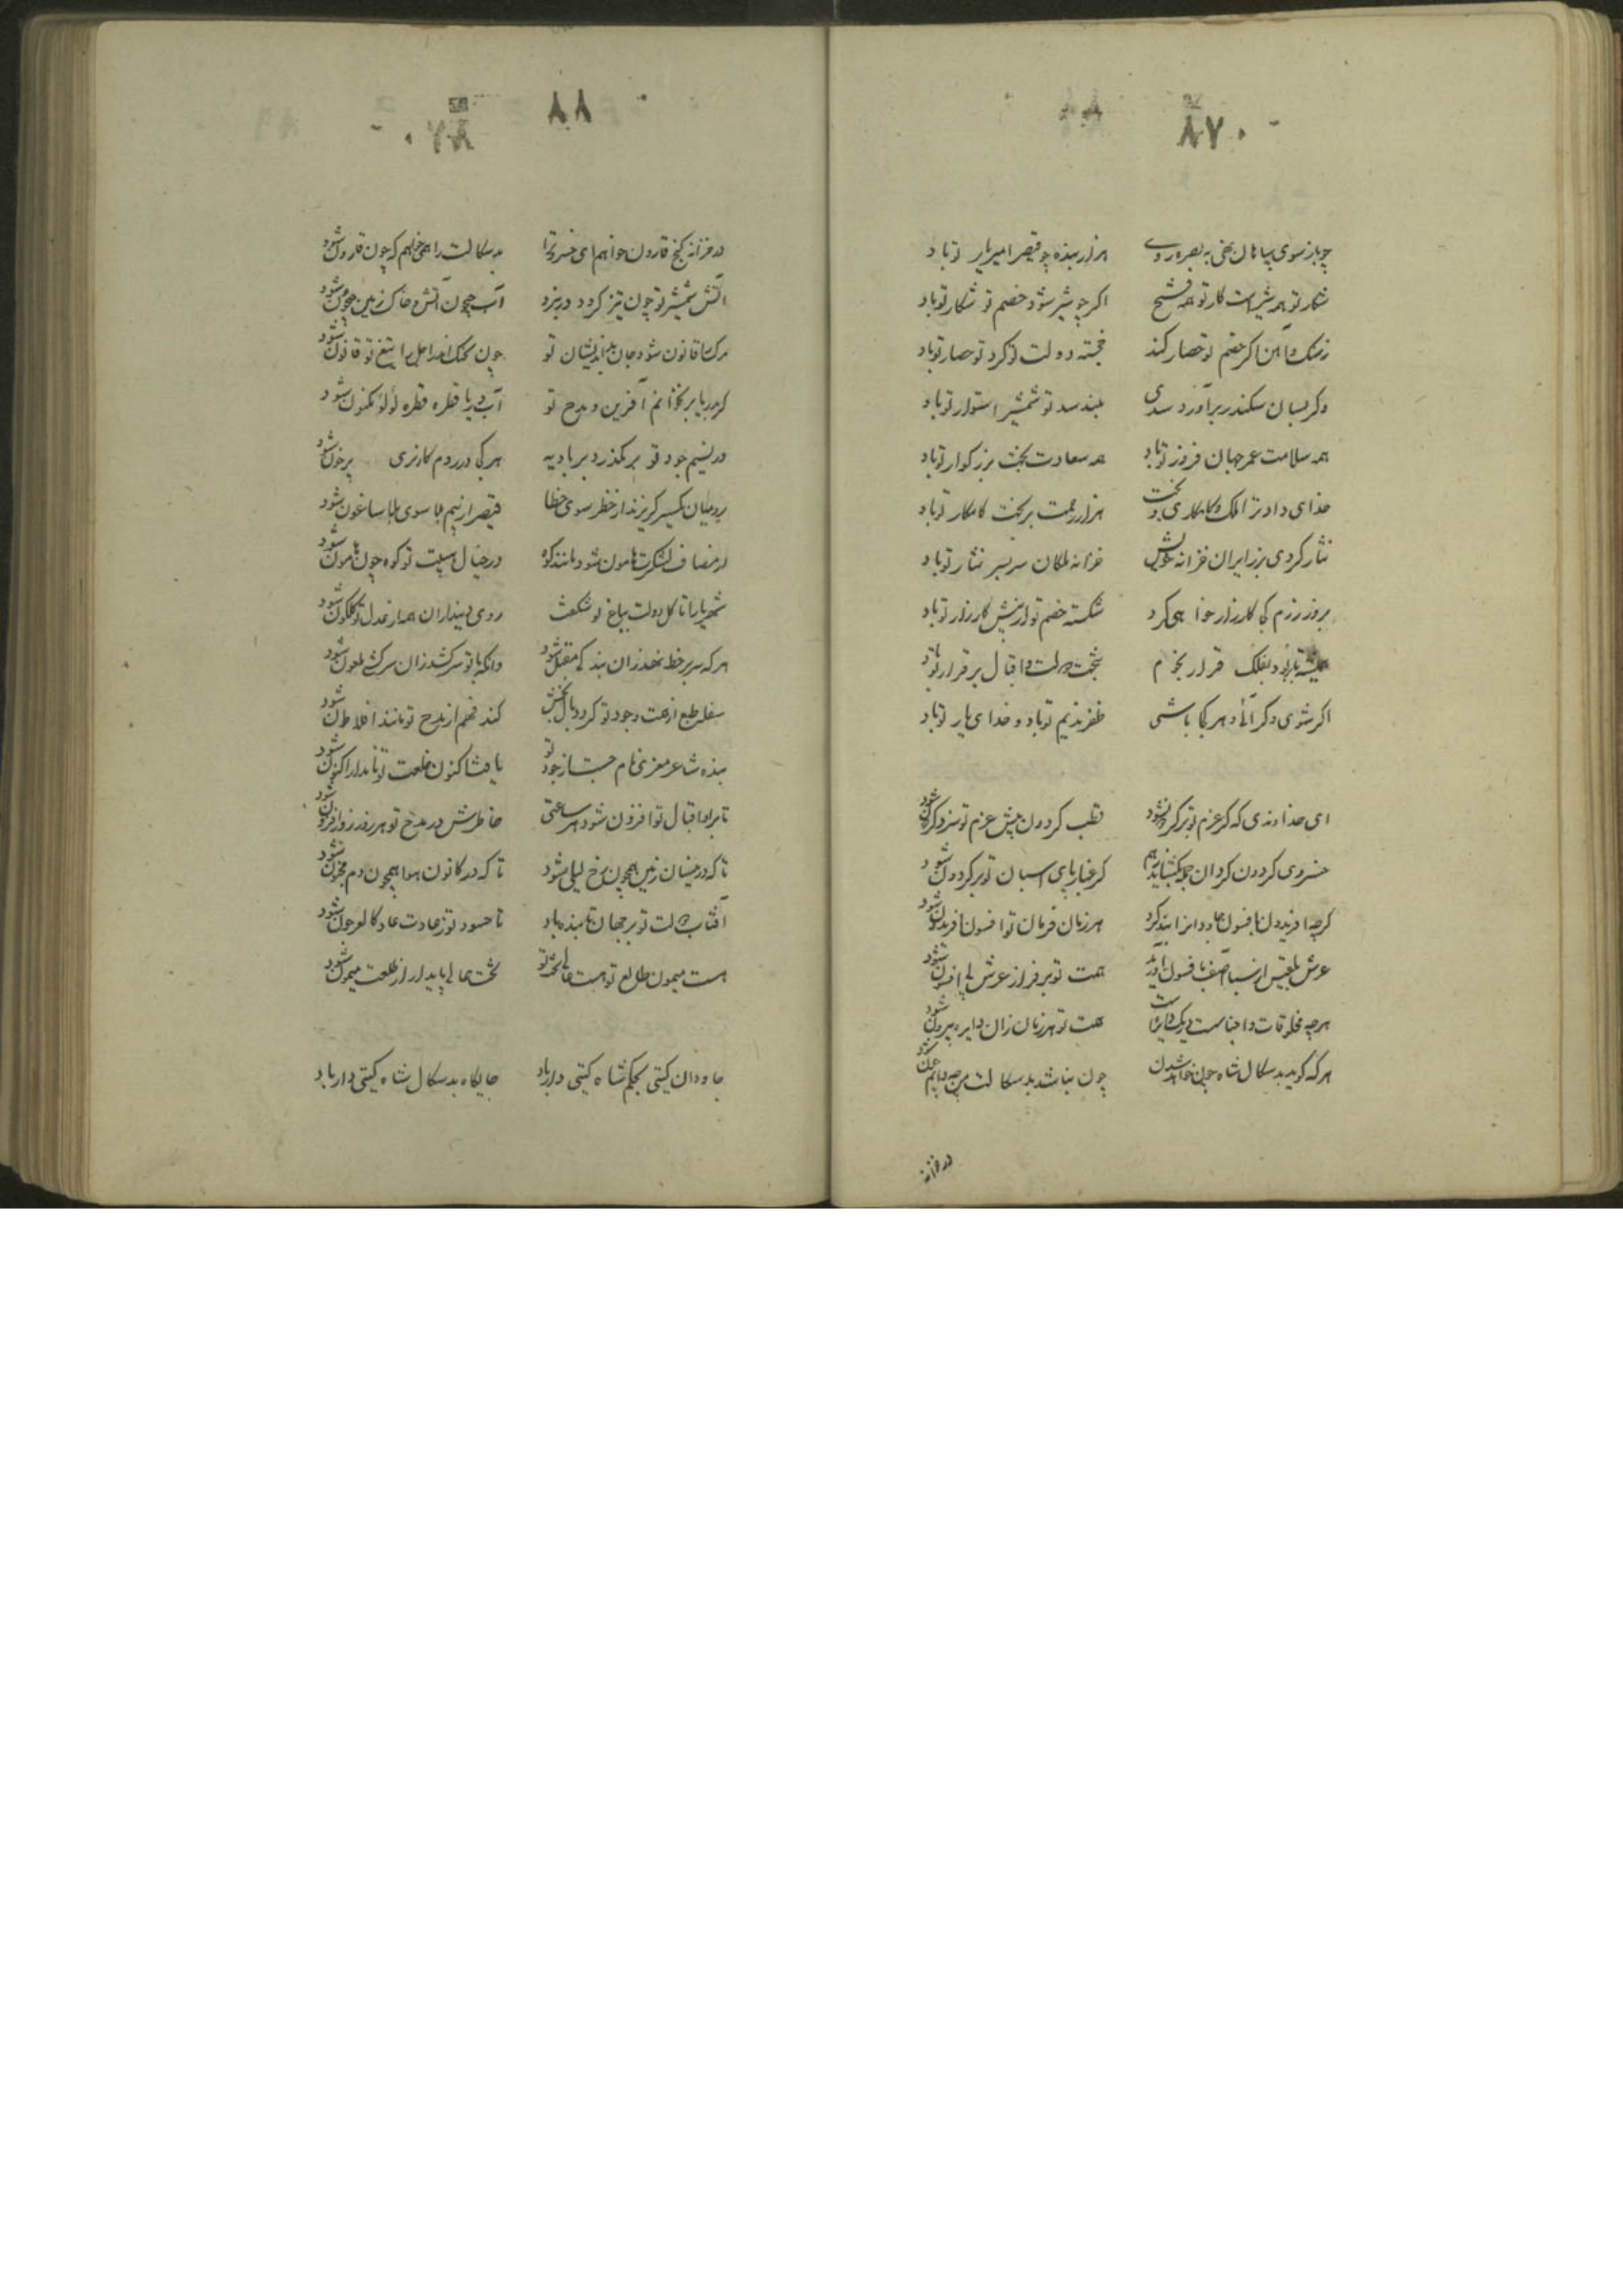 ۸۷
چو باز سوی سپاهان نهی به بصره روی هزار بنده چو قیصر امیر بار تو باد
شکار تو همه شیرست کار تو همه فتح اگر چو شیر شود خصم تو شکار تو باد
ز سنگ و آهن اگر خصم تو حصار کند خجسته دولت تو گرد تو حصار تو باد
وگر بسان سکندر برآورد سدی بلند سد تو شمشیر استوار تو باد
همه سلامت عمر جهان فروز تو باد همه سعادت بخت بزرگوار تو باد
خدای داد ترا ملک و کامکاری و بخت هزار رحمت بر بخت کامکار تو باد
نثار کردی بر ایران خزانه خویش خزانه ملکان سربسر نثار تو باد
بروز رزم کجا کارزار خواهی کرد شکسته خصم تو از پیش کارزار تو باد
همیشه تا بود فلک قرار نجوم بتخت دولت و اقبال بر قرار تو باد
اگر شوی وگر آئی و هر کجا باشی ظفر ندیم تو باد و خدای یار تو باد
ای خداوندی که گر عزم تو بر گردون شود قطب گردون پیش عزم تو سزد گر شود
خسروی گردون گردان چو بگشاید همی گر غبار پای اسبان تو بر گردون شود
گرچه افریدون بافسون جادوانرا بند کرد هر زمان فرمان تو افسون افریدون شود
عرش بلقیس از سبا آصف بافسون آورید همت تو بر فراز عرش بی افسون شود
هرچه مخلوقات و اجناسست در یک دایره است همت تو هر زمان زان دایره بیرون شود
هرکه گوید بدسگال شاه چون خواهد شدن چون نباشد بدسگالت من چه دانم چون شود
در خزانه
۸۸
در خزانه گنج قارون خواهم ای خسرو ترا بدسگالت را همی خواهم که چون قارون شود
آتش شمشیر تو چون تیز گردد در نبرد آب چون آتش و خاک زمین چون شود
مرگ را قانون شود جان بداندیشان تو چون اجل را تیغ تو قانون شود
گر بدریا بر بخوانم آفرین و مدح تو آب دریا قطره قطره لؤلؤ مکنون شود
ور نسیم جود تو بر بگذرد بر بادیه هر کجا در روم کارزاری پر خون شود
رومیان یکسر گریزند از خطر سوی خطا قیصر از بیم بلا سوی بلاساغون شود
در مصاف لشکرت هامون شود مانند کوه در خیال هیبت تو کوه چون هامون شود
شهریارا تا گل دولت بباغ تو شکفت روی دینداران همه از عدل تو گلگون شود
هرکه سر بر خط نهد زان بندگی مقبل شود وانکه با تو سر کشد زان سرکشی ملعون شود
سفله طبع از همت و جود تو گردد مال بخش کند فهم از مدح تو مانند افلاطون شود
بنده شاعر معزی نام جست از جود تو یافت اکنون خلعت تو نامدار اکنون شود
تا برادا اقبال تو افزون شود هر ساعتی خاطرش در مدح تو هر روز روزافزون شود
تا که در نیسان زمین همچون رخ لیلی شود تا که در کانون هوا همچون دم مجنون شود
آفتاب دولت تو بر جهان تابنده باد تا حسود تو ز عادت عاد کالعرجون شود
هست میمون طالع تو هست عالی تخت تو تخت عالی پایدار از طلعت میمون شود
جاودان گیتی بحکم شاه گیتی دار باد جایگاه بدسگال شاه گیتی دار باد